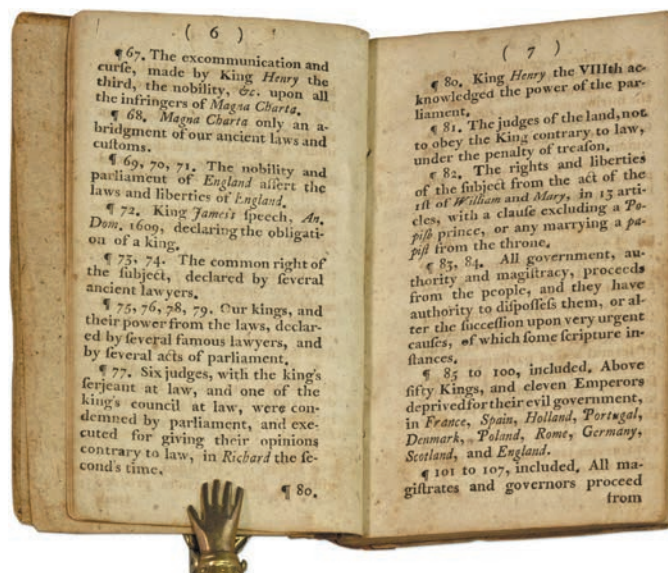 ( 6 )
¶ 67. The excommunication and
curſe, made by King Henry the
third, the nobility, &c. upon all
the infringers of Magna Charta.
¶ 68. Magna Charta only an a-
bridgment of our ancient laws and
cuſtoms.
¶ 69, 70, 71. The nobility and
parliament of England aſſert the
laws and liberties of England.
¶ 72. King James's ſpeech, An.
Dom. 1609, declaring the obligati-
on of a king.
¶ 73, 74. The common right of
the ſubject, declared by ſeveral
ancient lawyers.
¶ 75, 76, 78, 79. Our kings, and
their power from the laws, declar-
ed by ſeveral famous lawyers, and
by ſeveral acts of parliament.
¶ 77. Six judges, with the king's
ſerjeant at law, and one of the
king's council at law, were con-
demned by parliament, and exe-
cuted for giving their opinions
contrary to law, in Richard the ſe-
cond's time.
¶ 80.
( 7 )
¶ 80. King Henry the VIIIth ac-
knowledged the power of the par-
liament.
¶ 81. The judges of the land, not
to obey the King contrary to law,
under the penalty of treaſon.
¶ 82. The rights and liberties
of the ſubject from the act of the
1ſt of William and Mary, in 13 arti-
cles, with a clauſe excluding a Po-
piſh prince, or any marrying a pa-
piſt from the throne.
¶ 83, 84. All government, au-
thority and magiſtracy, proceeds
from the people, and they have
authority to diſpoſſeſs them, or al-
ter the ſucceſſion upon very urgent
cauſes, of which ſome ſcripture in-
ſtances.
¶ 85 to 100, included. Above
fifty Kings, and eleven Emperors
deprived for their evil government,
in France, Spain, Holland, Portugal,
Denmark, Poland, Rome, Germany,
Scotland, and England.
¶ 101 to 107, included. All ma-
giſtrates and governors proceed
from